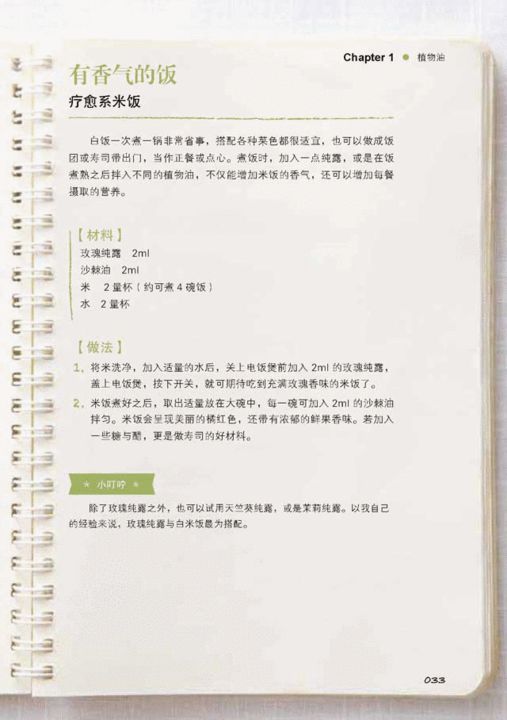 Chapter 1 ● 植物油
有香气的饭
疗愈系米饭
白饭一次煮一锅非常省事，搭配各种菜色都很适宜，也可以做成饭
团或寿司带出门，当作正餐或点心。煮饭时，加入一点纯露，或是在饭
煮熟之后拌入不同的植物油，不仅能增加米饭的香气，还可以增加每餐
摄取的营养。
【材料】
玫瑰纯露 2ml
沙棘油 2ml
米 2量杯（约可煮4碗饭）
水 2量杯
【做法】
1. 将米洗净，加入适量的水后，关上电饭煲前加入2ml的玫瑰纯露，
盖上电饭煲，按下开关，就可期待吃到充满玫瑰香味的米饭了。
2. 米饭煮好之后，取出适量放在大碗中，每一碗可加入2ml的沙棘油
拌匀。米饭会呈现美丽的橘红色，还带有浓郁的鲜果香味。若加入
一些糖与醋，更是做寿司的好材料。
★ 小叮咛 ★
除了玫瑰纯露之外，也可以试用天竺葵纯露，或是茉莉纯露。以我自己
的经验来说，玫瑰纯露与白米饭最为搭配。
033